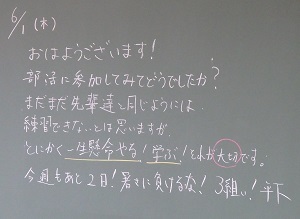 6/1(木)
おはようございます!
部活に参加してみてどうでしたか?
まだまだ先輩達と同じようには
練習できないとは思いますが、
とにかく一生懸命やる!学ぶ!それが大切です。
今週もあと2日!暑さに負けるな!3組い!平下